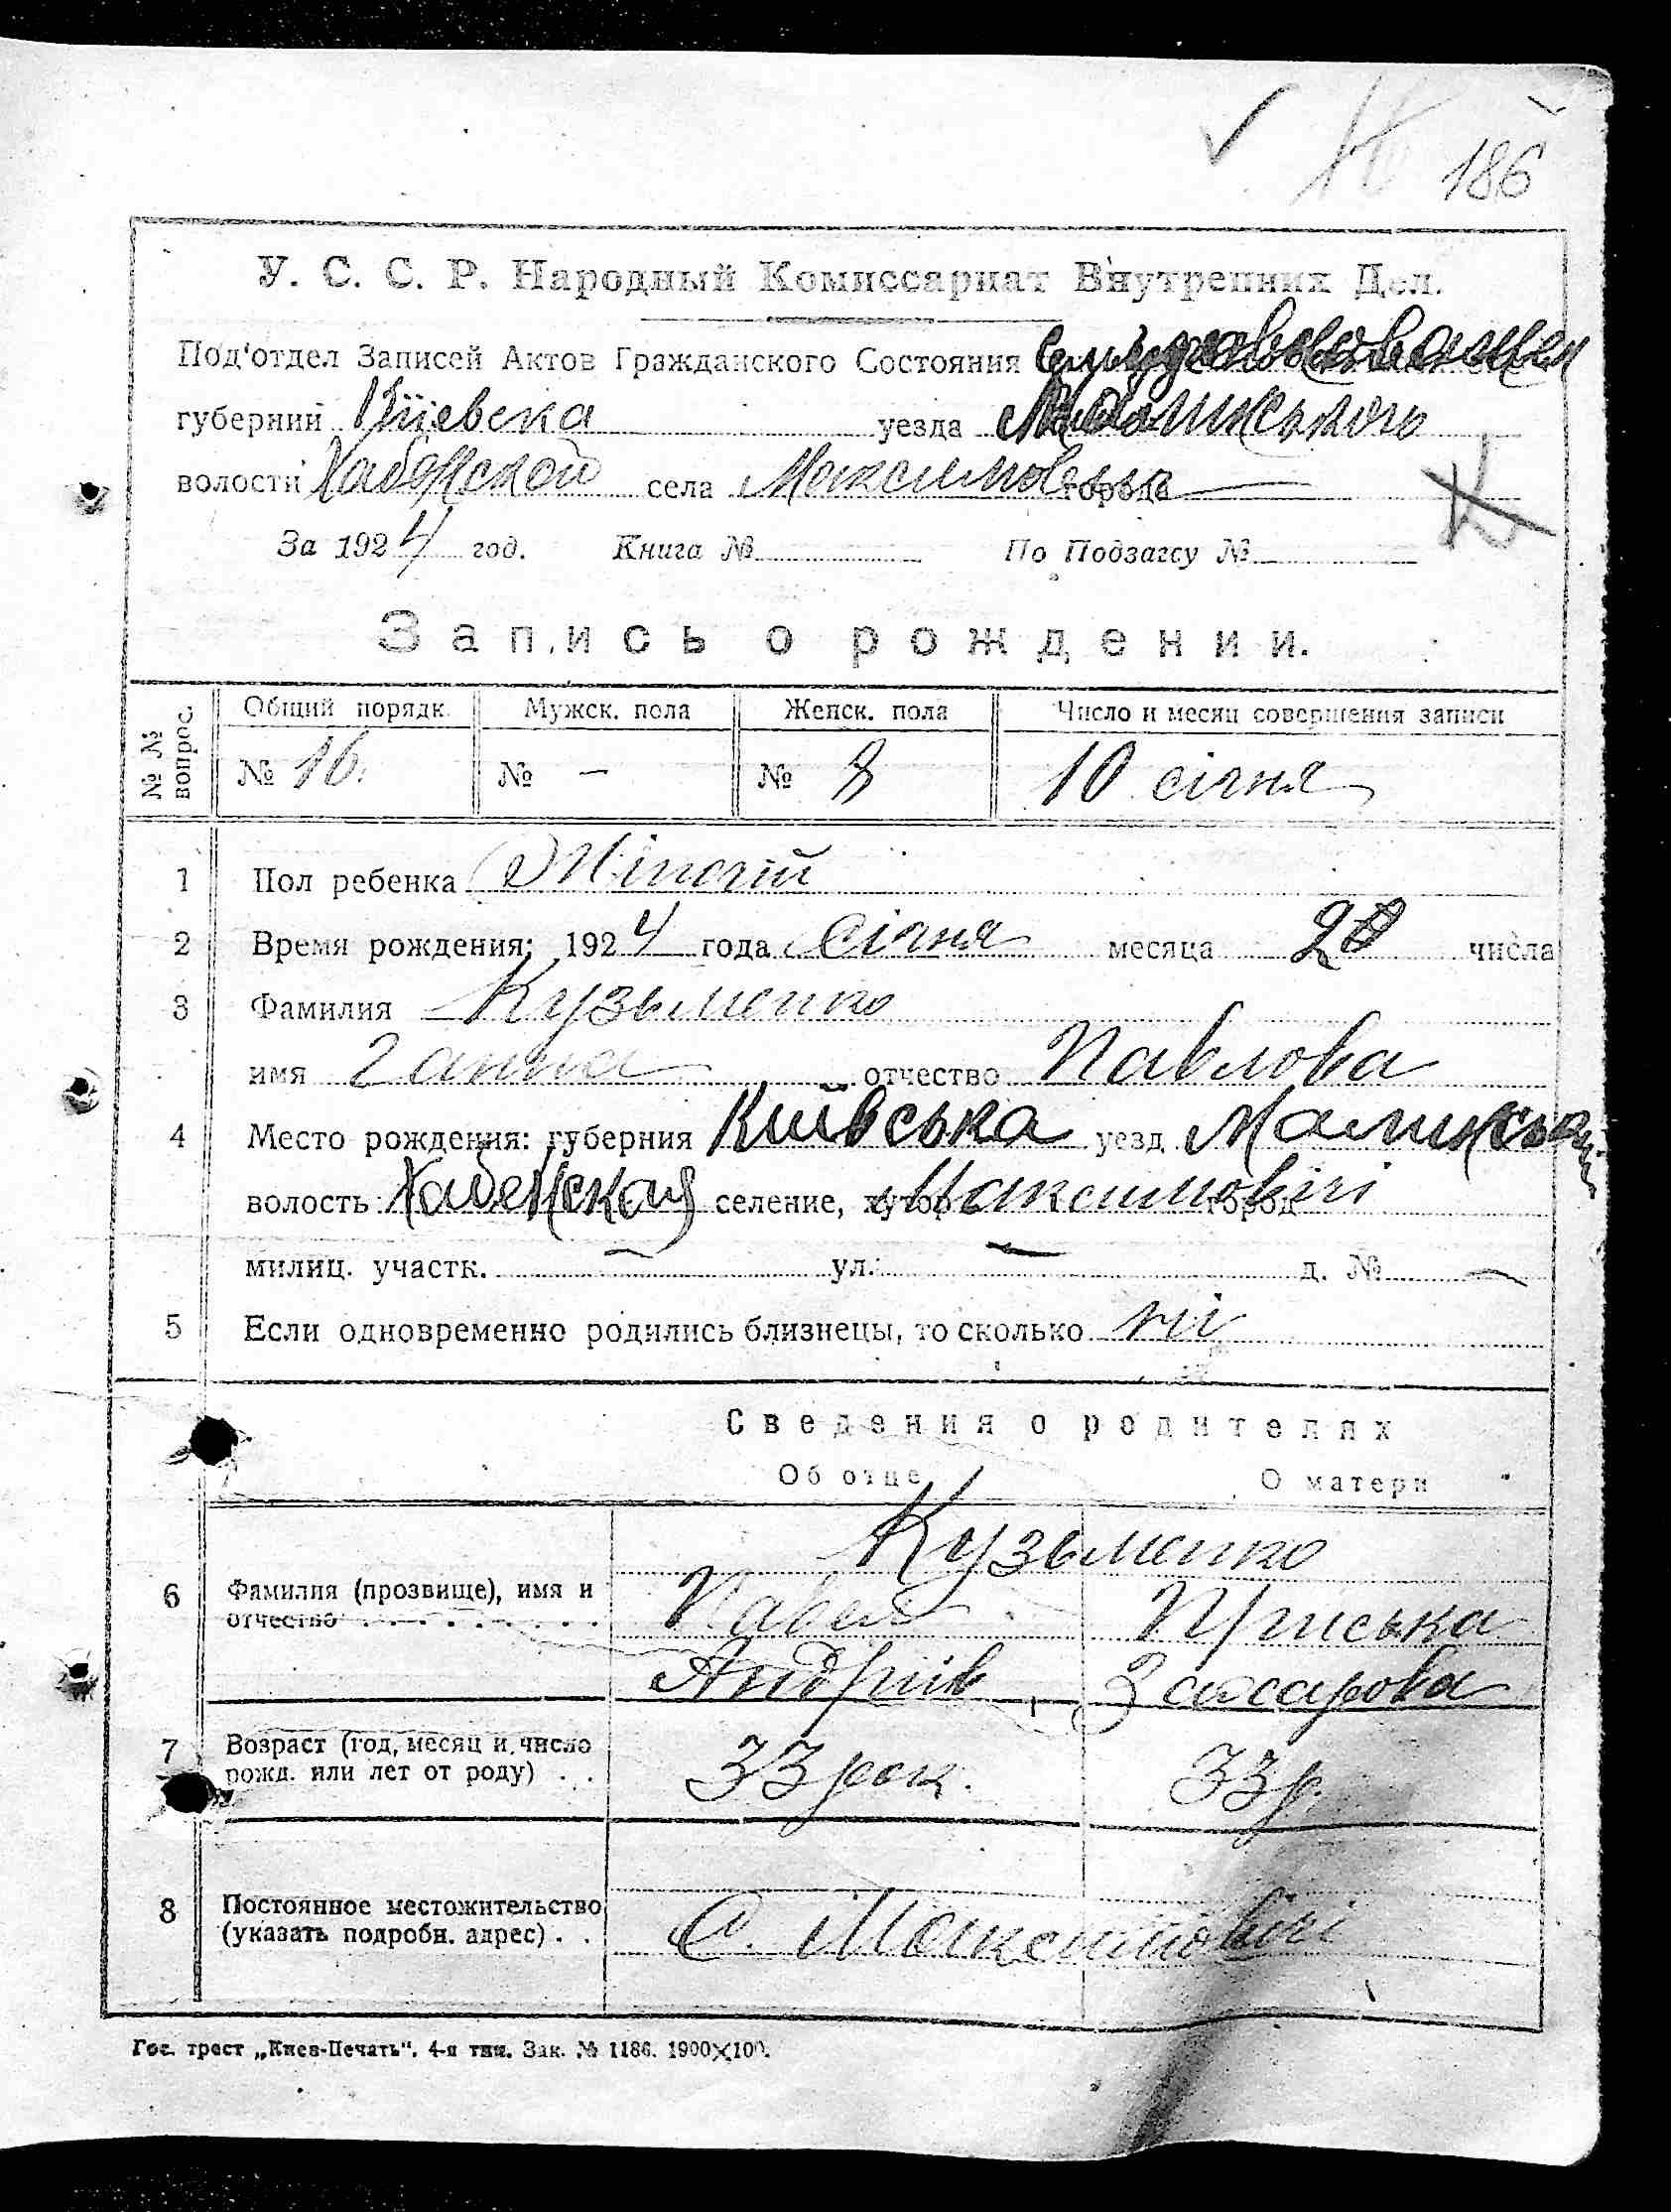 186
У. С. С. Р. Народный Комиссариат Внутренних Дел.
Под'отдел Записей Актов Гражданского Состояния
губернии Київска уезда
волости Хабенской села города
За 1924 год. Книга № По Подзагсу №
Запись о рождении.
№ № вопрос. Общий порядк. Мужск. пола Женск. пола Число и месяц совершения записи
№ 16. № — № 8 10 січня
1 Пол ребенка Жіночій
2 Время рождения; 1924 года січня месяца числа
3 Фамилия Кузьменко
имя Ганна отчество Павлова
4 Место рождения: губерния Київська уезд
волость Хабенская селение, хутор Максимовічі город
милиц. участк. — ул. — д. № —
5 Если одновременно родились близнецы, то сколько ні
Сведения о родителях
Об отце О матери
Кузьменко
6 Фамилия (прозвище), имя и отчество Павел Приська
Андріїв Захарова
7 Возраст (год, месяц и число рожд. или лет от роду) . . 33 рок. 33 р.
8 Постоянное местожительство (указать подробн. адрес) . . С. Максимовічі
Гос. трест „Киев-Печать". 4-я тип. Зак. № 1186. 1900×100.